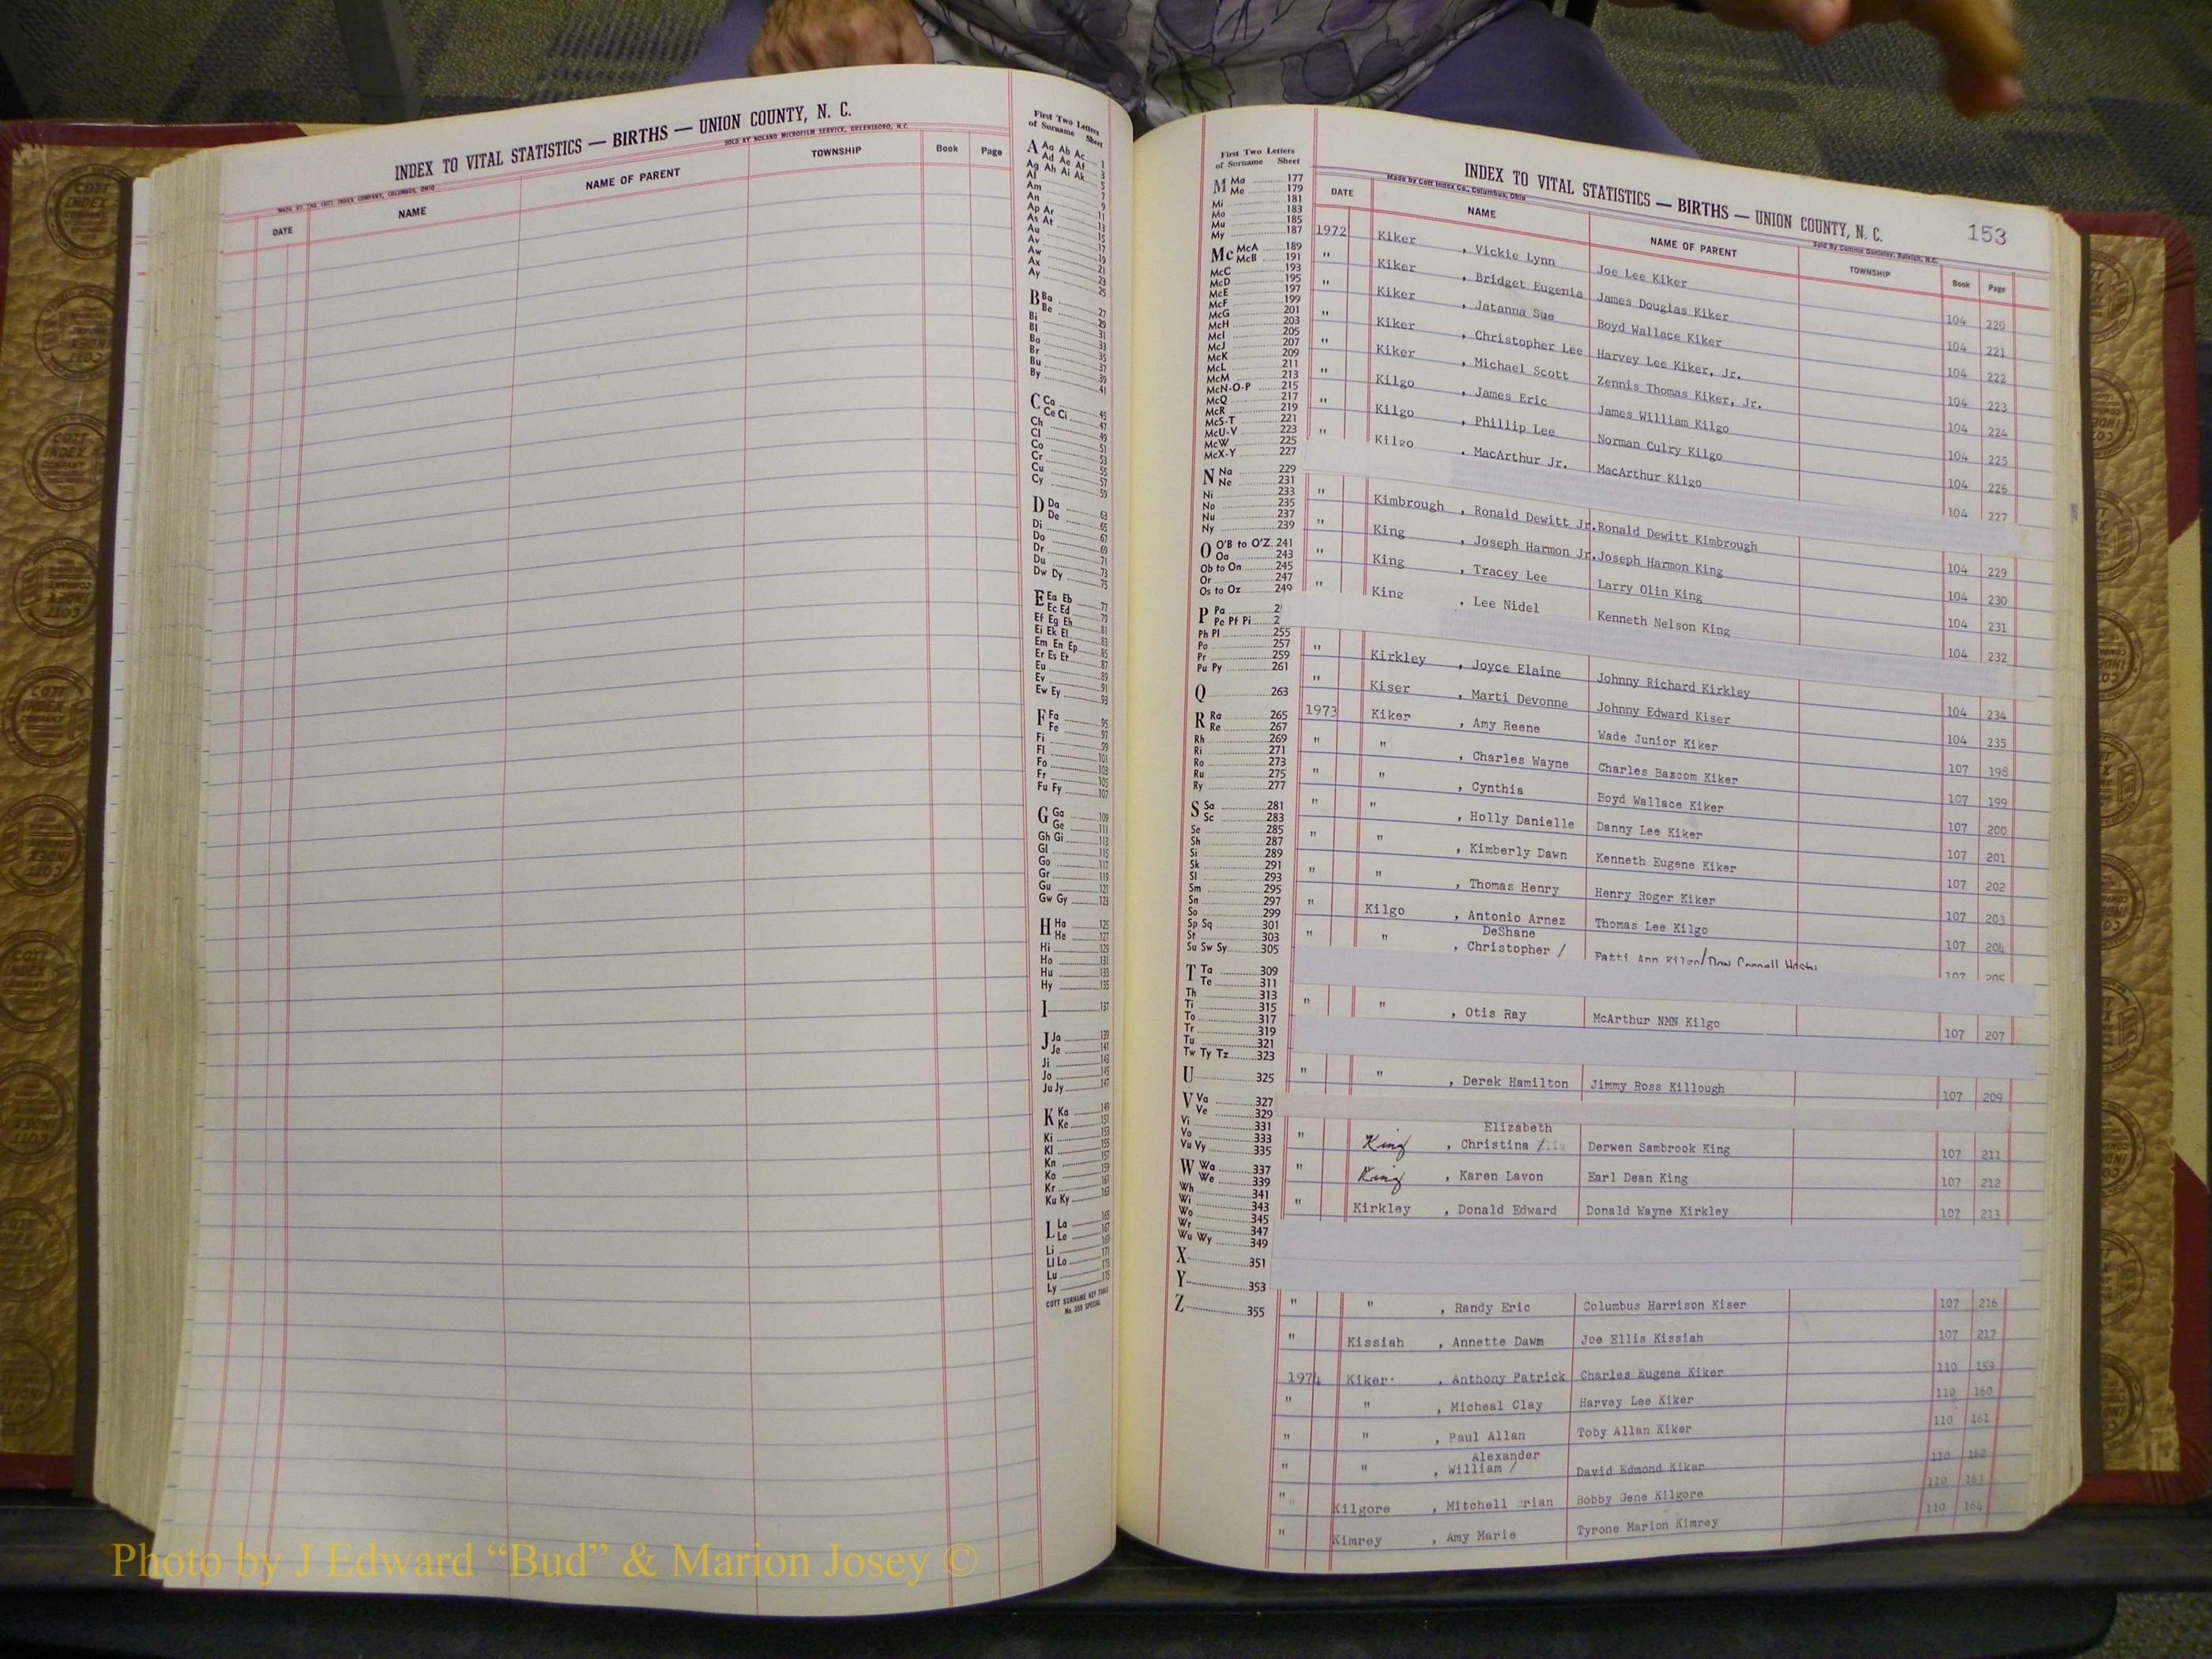 INDEX TO VITAL STATISTICS — BIRTHS — UNION COUNTY, N. C.
MADE BY THE COTT INDEX COMPANY, COLUMBUS, OHIO
SOLD BY NOLAND MICROFILM SERVICE, GREENSBORO, N.C.
DATE NAME NAME OF PARENT TOWNSHIP Book Page
First Two Letters
of Surname Sheet
A Aa Ab Ac 1
Ad Ae Af 3
Ag Ah Ai Ak 5
Al 7
Am 9
An 11
Ap Ar 13
As At 15
Au 17
Av 19
Aw 21
Ax 23
Ay 25
B Ba 27
Be 29
Bi 31
Bl 33
Bo 35
Br 37
Bu 39
By 41
C Ca 45
Ce Ci 47
Ch 49
Cl 51
Co 53
Cr 55
Cu 57
Cy 59
D Da 63
De 65
Di 67
Do 69
Dr 71
Du 73
Dw Dy 75
E Ea Eb 77
Ec Ed 79
Ef Eg Eh 81
Ei Ek El 83
Em En Ep 85
Er Es Et 87
Eu 89
Ev 91
Ew Ey 93
F Fa 95
Fe 97
Fi 99
Fl 101
Fo 103
Fr 105
Fu Fy 107
G Ga 109
Ge 111
Gh Gi 113
Gl 115
Go 117
Gr 119
Gu 121
Gw Gy 123
H Ha 125
He 127
Hi 129
Ho 131
Hu 133
Hy 135
I 137
J Ja 139
Je 141
Ji 143
Jo 145
Ju Jy 147
K Ka 149
Ke 151
Ki 153
Kl 155
Kn 157
Ko 159
Kr 161
Ku Ky 163
L La 165
Le 167
Li 169
Ll Lo 171
Lu 173
Ly 175
COTT SURNAME KEY TABLE
No. 355 SPECIAL
First Two Letters
of Surname Sheet
M Ma 177
Me 179
Mi 181
Mo 183
Mu 185
My 187
Mc McA 189
McB 191
McC 193
McD 195
McE 197
McF 199
McG 201
McH 203
McI 205
McJ 207
McK 209
McL 211
McM 213
McN-O-P 215
McQ 217
McR 219
McS-T 221
McU-V 223
McW 225
McX-Y 227
N Na 229
Ne 231
Ni 233
No 235
Nu 237
Ny 239
O O'B to O'Z 241
Oa 243
Ob to On 245
Or 247
Os to Oz 249
P Pa
Pe Pf Pi
Ph Pl 255
Po 257
Pr 259
Pu Py 261
Q 263
R Ra 265
Re 267
Rh 269
Ri 271
Ro 273
Ru 275
Ry 277
S Sa 281
Sc 283
Se 285
Sh 287
Si 289
Sk 291
Sl 293
Sm 295
Sn 297
So 299
Sp Sq 301
St 303
Su Sw Sy 305
T Ta 309
Te 311
Th 313
Ti 315
To 317
Tr 319
Tu 321
Tw Ty Tz 323
U 325
V Va 327
Ve 329
Vi 331
Vo 333
Vu Vy 335
W Wa 337
We 339
Wh 341
Wi 343
Wo 345
Wr 347
Wu Wy 349
X 351
Y 353
Z 355
INDEX TO VITAL STATISTICS — BIRTHS — UNION COUNTY, N. C. 153
Made by Cott Index Co., Columbus, Ohio
DATE NAME NAME OF PARENT TOWNSHIP Book Page
1972 Kiker , Vickie Lynn Joe Lee Kiker 104 220
" Kiker , Bridget Eugenia James Douglas Kiker 104 221
" Kiker , Jatanna Sue Boyd Wallace Kiker 104 222
" Kiker , Christopher Lee Harvey Lee Kiker, Jr. 104 223
" Kiker , Michael Scott Zennis Thomas Kiker, Jr. 104 224
" Kilgo , James Eric James William Kilgo 104 225
" Kilgo , Phillip Lee Norman Culry Kilgo 104 226
" Kilgo , MacArthur Jr. MacArthur Kilgo 104 227
" Kimbrough , Ronald Dewitt Jr. Ronald Dewitt Kimbrough 104 229
" King , Joseph Harmon Jr. Joseph Harmon King 104 230
" King , Tracey Lee Larry Olin King 104 231
" King , Lee Nidel Kenneth Nelson King 104 232
" Kirkley , Joyce Elaine Johnny Richard Kirkley 104 234
" Kiser , Marti Devonne Johnny Edward Kiser 104 235
1973 Kiker , Amy Reene Wade Junior Kiker 107 198
" " , Charles Wayne Charles Bascom Kiker 107 199
" " , Cynthia Boyd Wallace Kiker 107 200
" " , Holly Danielle Danny Lee Kiker 107 201
" " , Kimberly Dawn Kenneth Eugene Kiker 107 202
" " , Thomas Henry Henry Roger Kiker 107 203
" Kilgo , Antonio Arnez Thomas Lee Kilgo 107 204
DeShane
" " , Christopher / Patti Ann Kilgo/ 107 205
" " , Otis Ray McArthur NMN Kilgo 107 207
" " , Derek Hamilton Jimmy Ross Killough 107 209
Elizabeth
" King , Christina / Derwen Sambrook King 107 211
" King , Karen Lavon Earl Dean King 107 212
" Kirkley , Donald Edward Donald Wayne Kirkley 107 213
" " , Randy Eric Columbus Harrison Kiser 107 216
" Kissiah , Annette Dawn Joe Ellis Kissiah 107 217
1974 Kiker , Anthony Patrick Charles Eugene Kiker 110 159
" " , Micheal Clay Harvey Lee Kiker 110 160
" " , Paul Allan Toby Allan Kiker 110 161
Alexander
" " , William / David Edmond Kiker 110 162
" Kilgore , Mitchell Brian Bobby Gene Kilgore 110 163
" Kimrey , Amy Marie Tyrone Marion Kimrey 110 164
Photo by J Edward “Bud” & Marion Josey ©